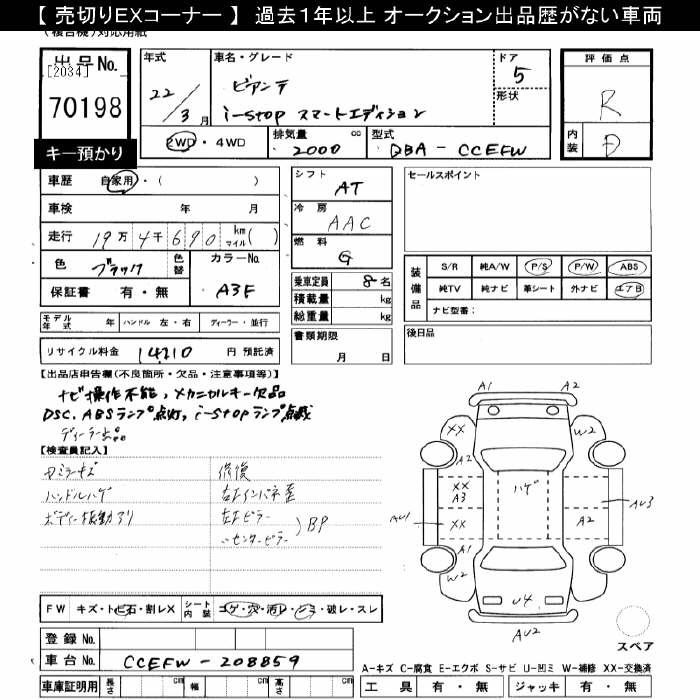 【 売切りEXコーナー 】 過去１年以上 オークション出品歴がない車両
出品No.
[2034]
70198
キー預かり
年式
22/3月
車名・グレード
ビアンテ
i-stop スマートエディション
ドア
5
形状
2WD・4WD
排気量 cc
2000
型式
DBA - CCEFW
評価点
R
内装
D
車歴 自家用・( )
車検 年 月
走行 19万4千690 km マイル( )
色 ブラック 色替
カラーNo.
A3F
保証書 有・無
モデル年式 年 ハンドル 左・右 ディーラー・並行
リサイクル料金 14710 円 預託済
シフト
AT
冷房
AAC
燃料
G
乗車定員 8名
積載量 kg
総重量 kg
書類期限
月 日
セールスポイント
装備品
S/R 純A/W P/S P/W ABS
純TV 純ナビ 革シート 外ナビ エアB
ナビ型番：
後日品
【出品店申告欄(不良箇所・欠品・注意事項等)】
ナビ操作不能，メカニカルキー欠品
DSC. ABSランプ点灯，i-stopランプ点滅
【検査員記入】
ハンドルハゲ
ボディー振動アリ
修復
右Fインパネ歪
右Fピラー
〃センターピラー
BP
FW キズ・トビ石・割レX
シート内装 コゲ・穴・汚レ・シミ・破レ・スレ
登録No.
車台No. CCEFW-208859
車庫証明用 長さ cm 幅 cm 高さ cm
A1 A2
XX W2
A2
XX
A3
ハゲ
AU1 XX A2 AU3
A1
W2
U4
AU2
スペア
A-キズ C-腐食 E-エクボ S-サビ U-凹ミ W-補修 XX-交換済
工具 有・無 ジャッキ 有・無